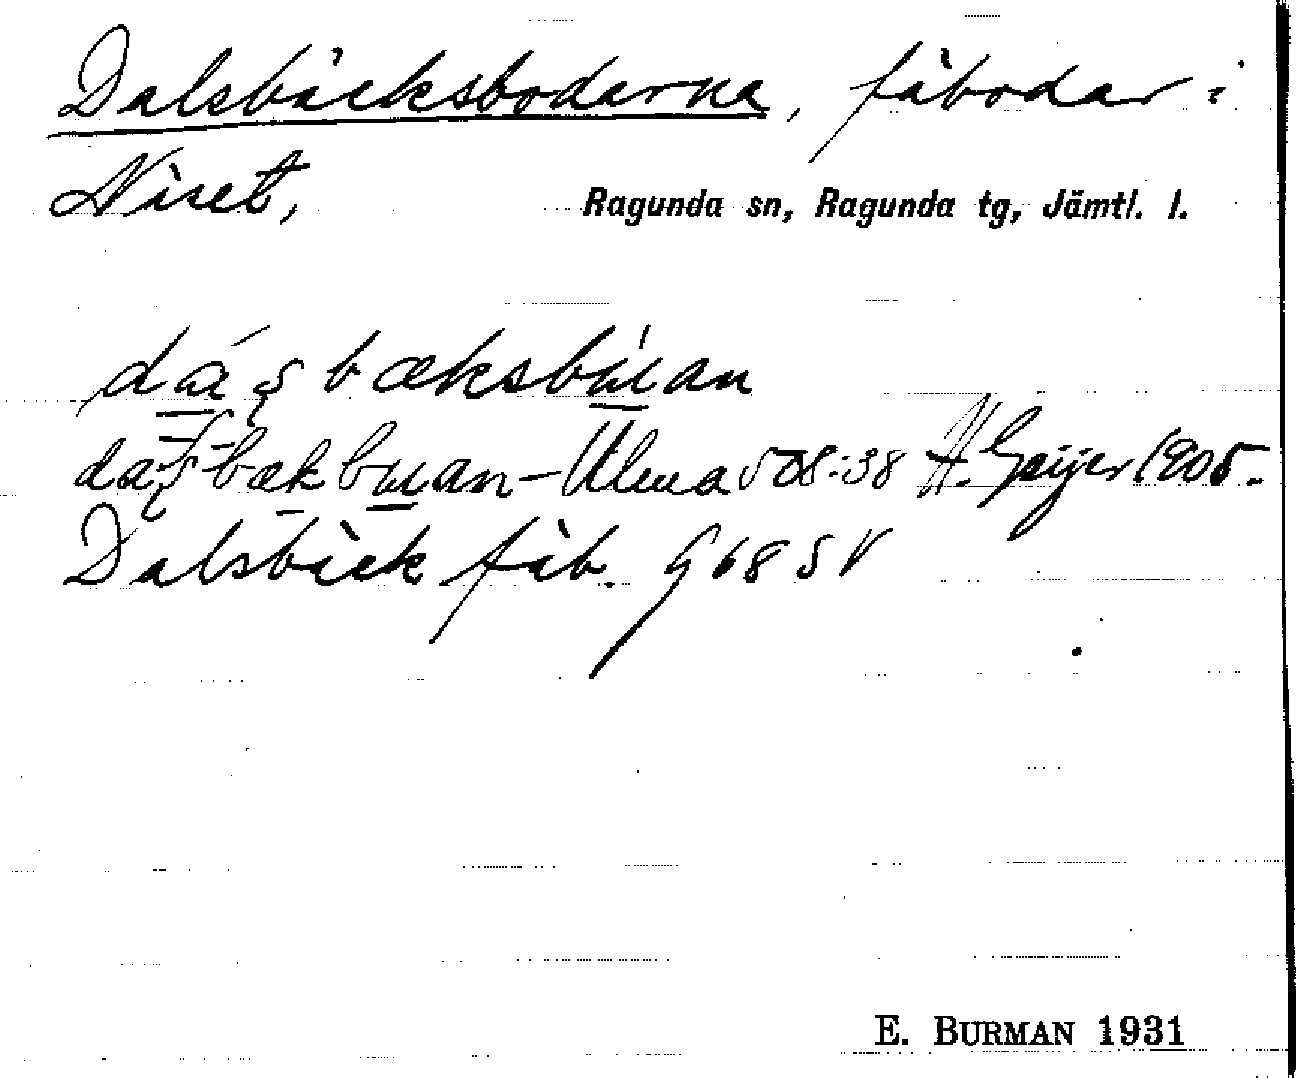 Dalsbäcksbodarna, fäbodar i
Näset,
Ragunda sn, Ragunda tg, Jämtl. l.
bæksbɯan
bækbɯan – Ulma 508:38 H. Geijer 1905.
Dalsbäck fäb. G 68 SV
E. BURMAN 1931